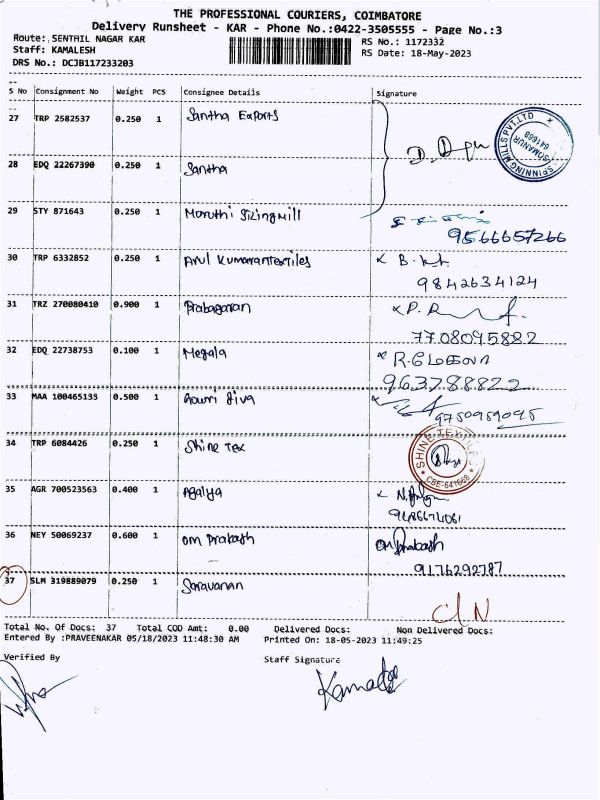 THE PROFESSIONAL COURIERS, COIMBATORE
Delivery Runsheet - KAR - Phone No.:0422-3505555 - Page No.:3
Route: SENTHIL NAGAR KAR RS No.: 1172332
Staff: KAMALESH RS Date: 18-May-2023
DRS No.: DCJB117233203
S No Consignment No Weight PCS Consignee Details Signature
27 TRP 2582537 0.250 1 Santha Exports
SPINNING MILLS PVT.LTD SOMANUR 641668
28 EDQ 22267390 0.250 1 Santha
29 STY 871643 0.250 1 Maruthi Sizingmill
9566657266
30 TRP 6332852 0.250 1 Arul Kumarantextiles
9842634124
31 TRZ 270080410 0.900 1 Prabagaran
7708095882
32 EDQ 22738753 0.100 1 Megala R.மேகலா
963788822
33 MAA 100465133 0.500 1 Gowri Jiva
9750959095
34 TRP 6084426 0.250 1 Shine Tex
SHINE TEX CBE-641668
35 AGR 700523563 0.400 1 Agalya
36 NEY 50069237 0.600 1 Om Prakash Om Prakash
9176292787
37 SLM 319889079 0.250 1 Saravanan
C/N
Total No. Of Docs: 37 Total COD Amt: 0.00 Delivered Docs: Non Delivered Docs:
Entered By :PRAVEENAKAR 05/18/2023 11:48:30 AM Printed On: 18-05-2023 11:49:25
Verified By Staff Signature